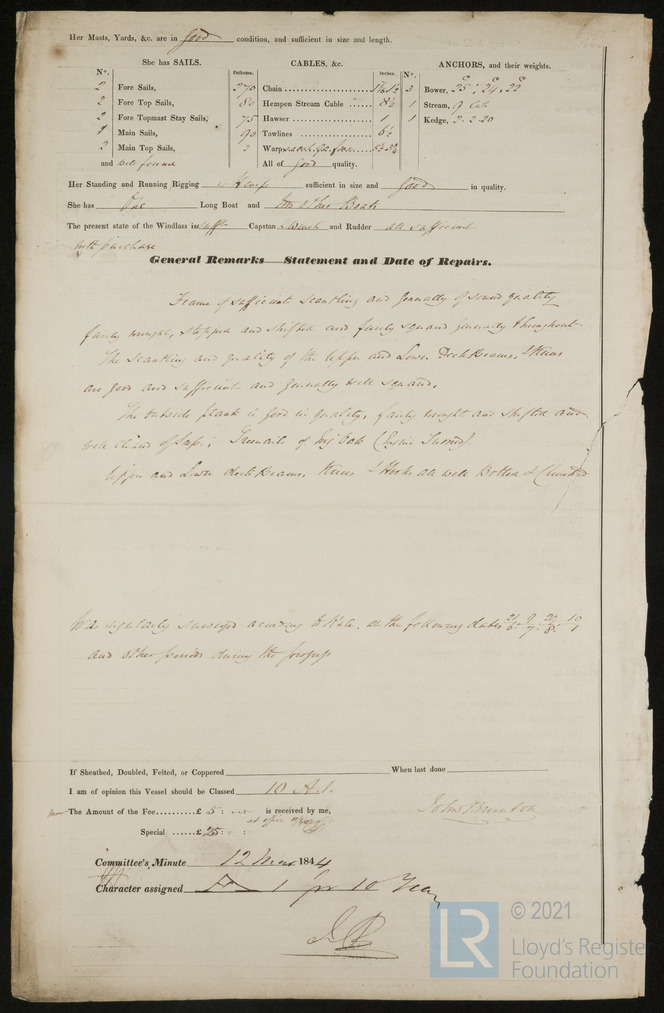 Her Masts, Yards, &c. are in good condition, and sufficient in size and length.
She has SAILS. CABLES, &c. ANCHORS, and their weights.
N°. Fathoms. Inches. N°.
2 Fore Sails, 270 Chain 3 Bower, 25 : 24 : 22
2 Fore Top Sails, 80 Hempen Stream Cable 8½ 1 Stream, 9
2 Fore Topmast Stay Sails, 75 Hawser 1 Kedge, 2 . 2 . 20
Main Sails, 90 Towlines 6½
2 Main Top Sails, Warp
and well found All of good quality.
Her Standing and Running Rigging is Hemp sufficient in size and good in quality.
She has One Long Boat and other Boats
The present state of the Windlass is Capstan and Rudder all sufficient
with purchase
General Remarks—Statement and Date of Repairs.
Frame of sufficient Scantling and generally of sound quality
fairly wrought, stopped and shifted and fairly squared generally throughout.
The Scantling and quality of the Upper and Lower Deck Beams, & Knees
are good and sufficient and generally well squared.
The outside plank is good in quality, fairly wrought and shifted and
well ; Treenails of Oak
Upper and Lower deck Beams, Knees & Hooks all well Bolted & Clenched
Was regularly surveyed according to Rule, at the following dates
and other periods during the progress
If Sheathed, Doubled, Felted, or Coppered When last done
I am of opinion this Vessel should be Classed 10 A.1.
The Amount of the Fee £ 5 : is received by me,
Special £ 25 :
Committee's Minute 12 1844
Character assigned A 1 for 10 Years
LR
© 2021
Lloyd's Register
Foundation